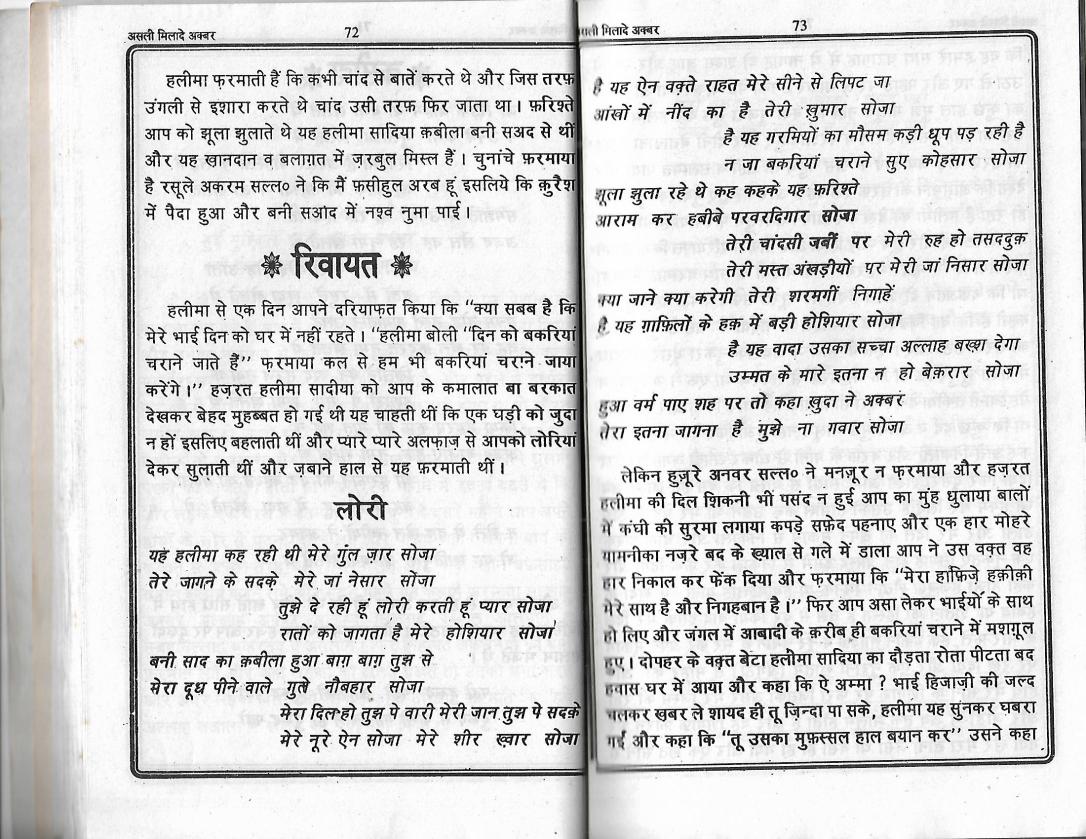 असली मिलादे अक्बर 72
हलीमा फ़रमाती हैं कि कभी चांद से बातें करते थे और जिस तरफ़
उंगली से इशारा करते थे चांद उसी तरफ़ फिर जाता था। फ़रिश्ते
आप को झूला झुलाते थे यह हलीमा सादिया क़बीला बनी सअद से थीं
और यह ख़ानदान व बलाग़त में ज़रबुल मिस्ल है। चुनांचे फ़रमाया
है रसूले अकरम सल्ल० ने कि मैं फ़सीहुल अरब हूं इसलिये कि क़ुरैश
में पैदा हुआ और बनी सओद में नश्व नुमा पाई।
रिवायत
हलीमा से एक दिन आपने दरियाफ़्त किया कि “क्या सबब है कि
मेरे भाई दिन को घर में नहीं रहते। “हलीमा बोली “दिन को बकरियां
चराने जाते हैं’’ फ़रमाया कल से हम भी बकरियां चराने जाया
करेंगे।’’ हज़रत हलीमा सादीया को आप के कमालात बा बरकात
देखकर बेहद मुहब्बत हो गई थी यह चाहती थीं कि एक घड़ी को जुदा
न हों इसलिए बहलाती थीं और प्यारे प्यारे अलफाज़ से आपको लोरियां
देकर सुलाती थीं और ज़बाने हाल से यह फ़रमाती थीं।
लोरी
यह हलीमा कह रही थी मेरे गुल ज़ार सोजा
तेरे जागने के सदके मेरे जां नेसार सोजा
तुझे दे रही हूं लोरी करती हूं प्यार सोजा
रातों को जागता है मेरे होशियार सोजा
बनी साद का क़बीला हुआ बाग़ बाग़ तुझ से
मेरा दूध पीने वाले गुले नौबहार सोजा
मेरा दिल हो तुझ पे वारी मेरी जान तुझ पे सदक़े
मेरे नूरे ऐन सोजा मेरे शीर ख़्वार सोजा
मिलादे अक्बर 73
है यह ऐन वक़्ते राहत मेरे सीने से लिपट जा
आंखों में नींद का है तेरी ख़ुमार सोजा
है यह गरमियों का मौसम कड़ी धूप पड़ रही है
न जा बकरियां चराने सुए कोहसार सोजा
झूला झुला रहे थे कह कहके यह फ़रिश्ते
आराम कर हबीबे परवरदिगार सोजा
तेरी चांदसी जबीं पर मेरी रुह हो तसददुक़
तेरी मस्त अंखड़ीयों पर मेरी जां निसार सोजा
क्या जाने क्या करेगी तेरी शरमगीं निगाहें
है यह ग़ाफ़िलों के हक़ में बड़ी होशियार सोजा
है यह वादा उसका सच्चा अल्लाह बख़्श देगा
उम्मत के मारे इतना न हो बेक़रार सोजा
हुआ वर्म पाए शह पर तो कहा ख़ुदा ने अक्बर
तेरा इतना जागना है मुझे ना गवार सोजा
लेकिन हुज़ूरे अनवर सल्ल० ने मनज़ूर न फ़रमाया और हज़रत
हलीमा की दिल शिकनी भी पसंद न हुई आप का मुंह धुलाया बालों
में कंघी की सुरमा लगाया कपड़े सफ़ेद पहनाए और एक हार मोहरे
यामनीका नज़रे बद के ख्याल से गले में डाला आप ने उस वक़्त वह
हार निकाल कर फेंक दिया और फ़रमाया कि “मेरा हाफ़िज़े हक़ीक़ी
मेरे साथ है और निगहबान है।’’ फिर आप असा लेकर भाईयों के साथ
हो लिए और जंगल में आबादी के क़रीब ही बकरियां चराने में मशग़ूल
हुए। दोपहर के वक़्त बेटा हलीमा सादिया का दौड़ता रोता पीटता बद
हवास घर में आया और कहा कि ऐ अम्मा ? भाई हिजाज़ी की जल्द
चलकर खबर ले शायद ही तू ज़िन्दा पा सके, हलीमा यह सुनकर घबरा
गई और कहा कि “तू उसका मुफ़स्सल हाल बयान कर’’ उसने कहा